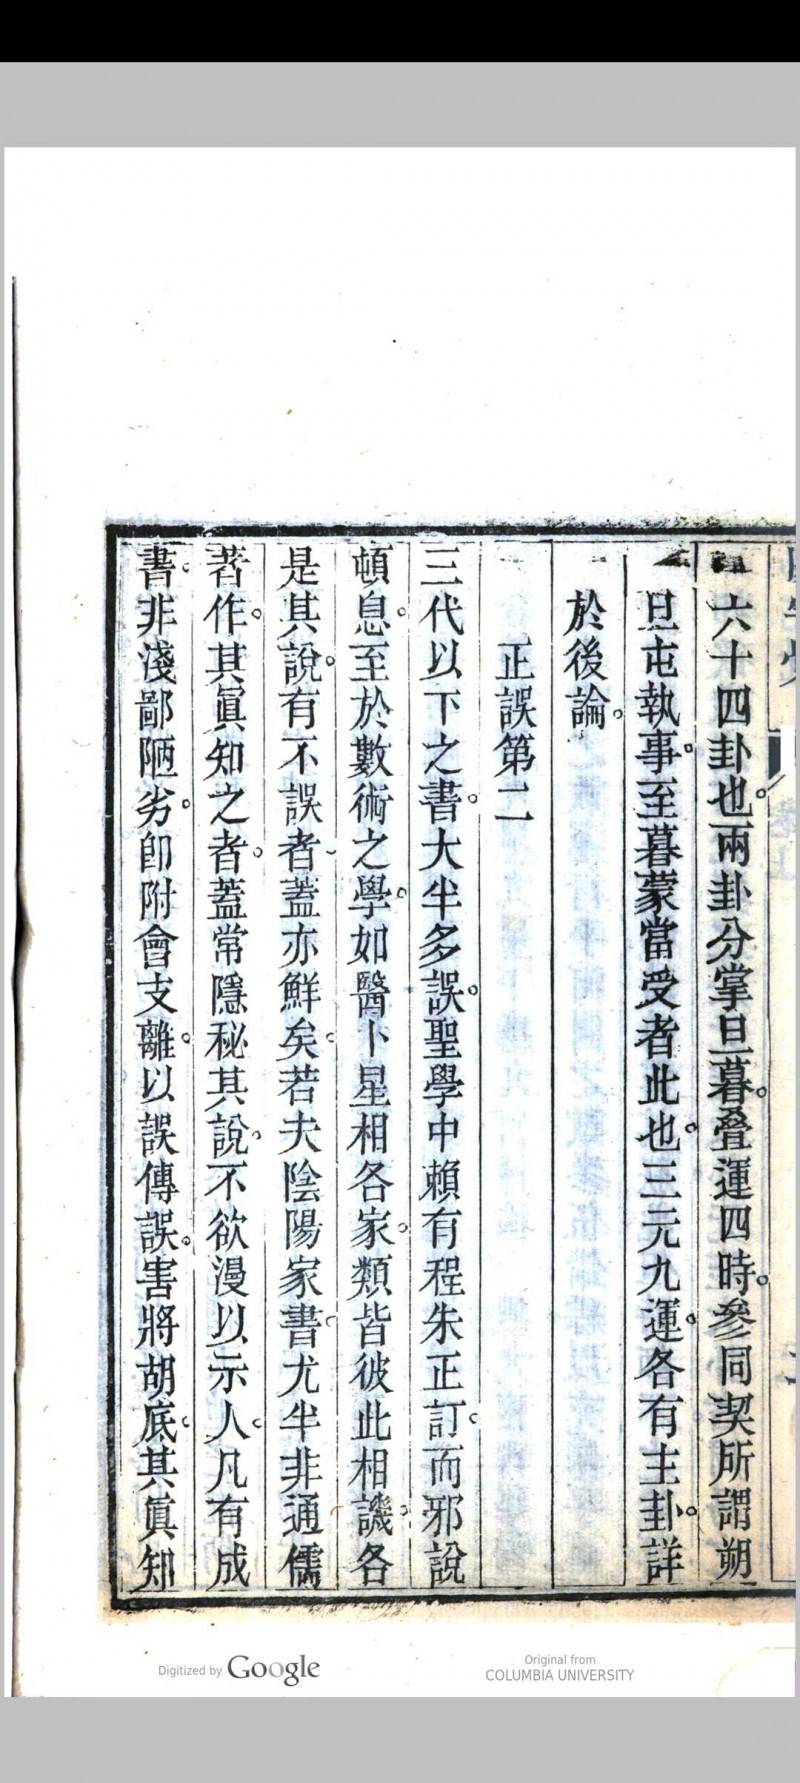 六十四卦也。兩卦分掌旦暮。叠運四時。參同契所謂朔
旦屯執事。至暮蒙當受者此也。三元九運。各有主卦。詳
於後論。
正誤第二
三代以下之書。大半多誤。聖學中賴有程朱正訂。而邪說
頓息。至於數術之學。如醫卜星相各家。類皆彼此相譏。各
是其說。有不誤者、蓋亦鮮矣。若夫陰陽家書。尤半非通儒
著作。其眞知之者。蓋常隱秘其說。不欲漫以示人。凡有成
書。非淺鄙陋劣。卽附會支離。以誤傳誤。害將胡底。其眞知
Digitized by Google
Original from
COLUMBIA UNIVERSITY